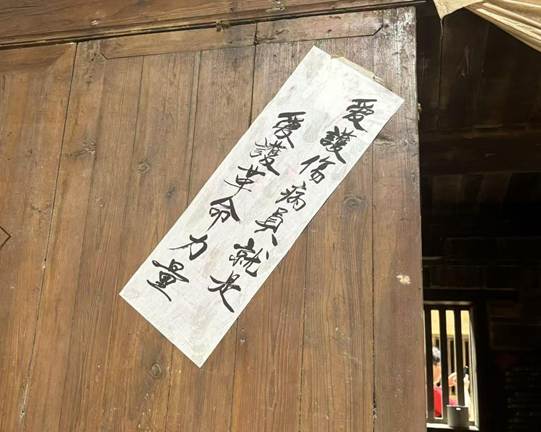 愛護傷病員就是
愛護革命力量